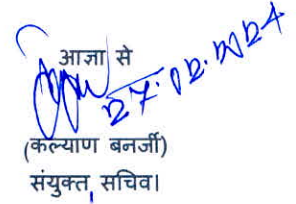 आज्ञा से
27.12.2024
(कल्याण बनर्जी)
संयुक्त सचिव।